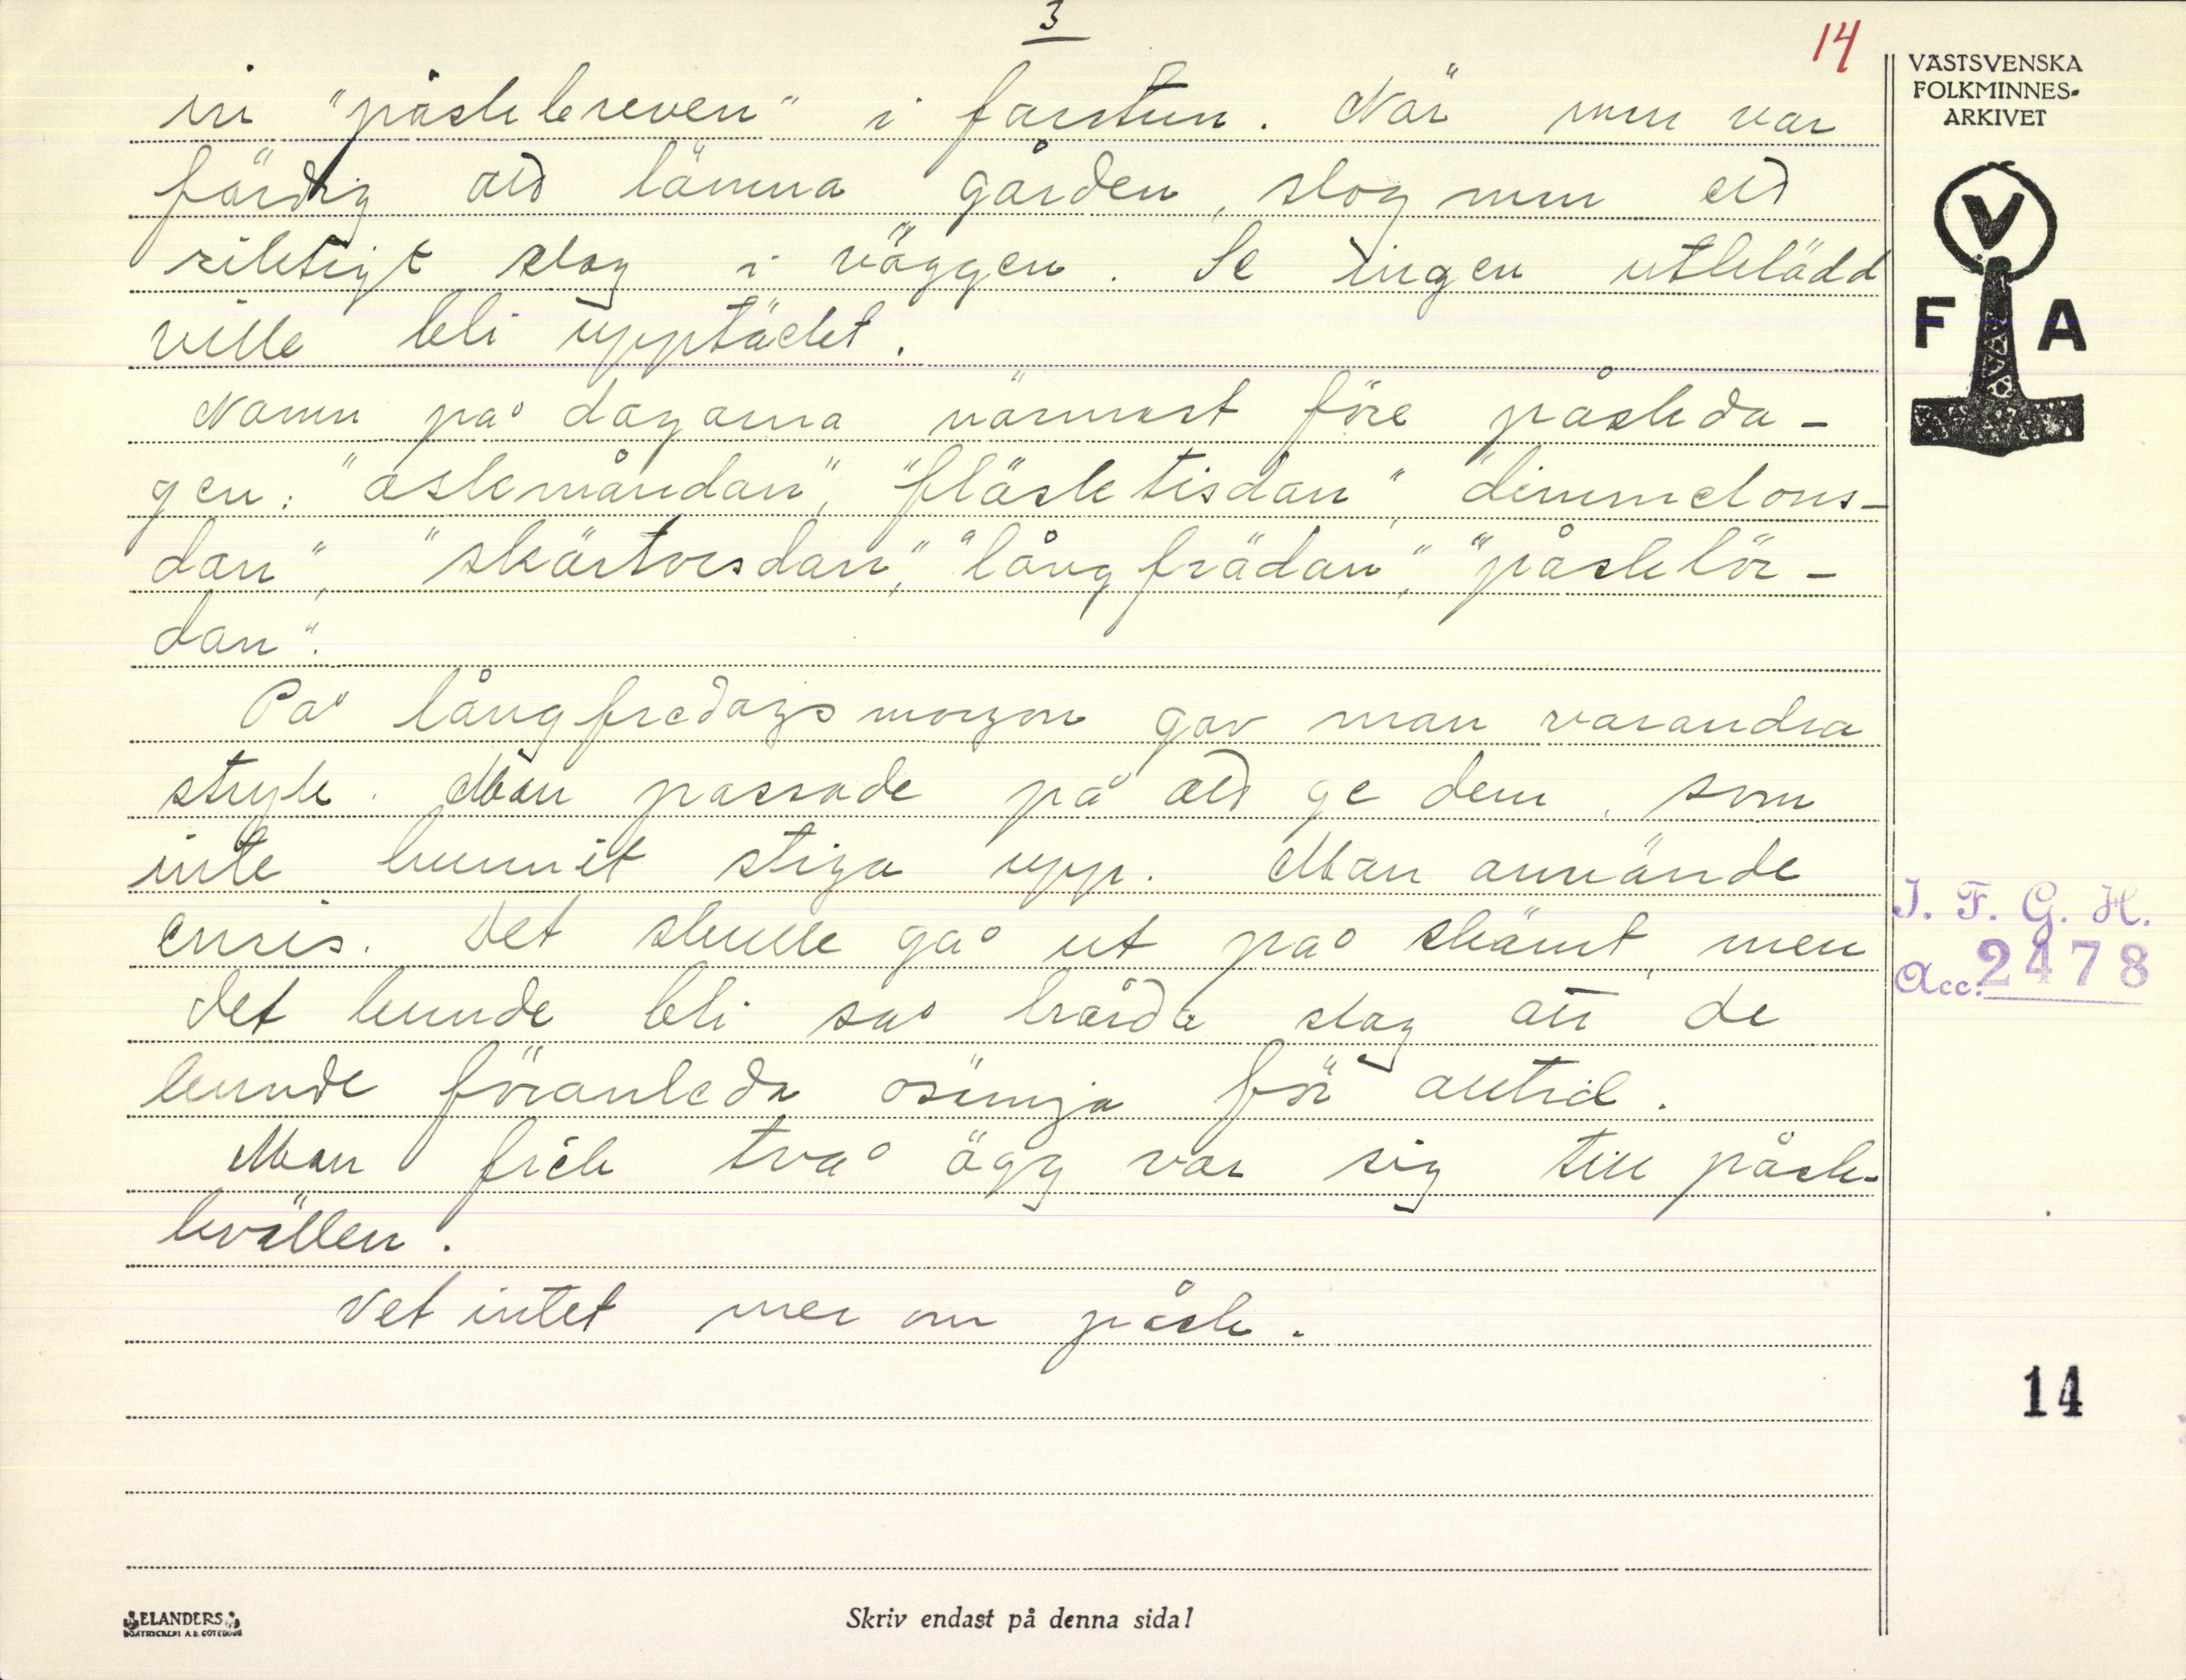 3
14
in "påskbreven" i farstun. När mun var
färdig att lämna gården, slog mun ett
riktigt slag i väggen. Se ingen utklädd
ville bli upptäckt.
Namn på dagarna närmast före påskda-
gen: "askmåndan", "fläsktisdan", "dimmelons-
dan", "skärtorsdan", "långfrädan", "påsklör-
dan".
På långfredagsmorgon gav man varandra
stryk. Man passade på att ge dem, som
inte hunnit stiga upp. Man använde
enris. Det skulle gå ut på skämt, men
det kunde bli så hårda slag att de
kunde föranleda osämja för alltid.
Man fick två ägg var sig till påsk-
kvällen.
Vet intet mer om påsk.
VÄSTSVENSKA
FOLKMINNES-
ARKIVET
V
F A
I. F. G. H.
Acc. 2478
14
ELANDERS
BOKTRYCKERI A.B. GÖTEBORG
Skriv endast på denna sida!